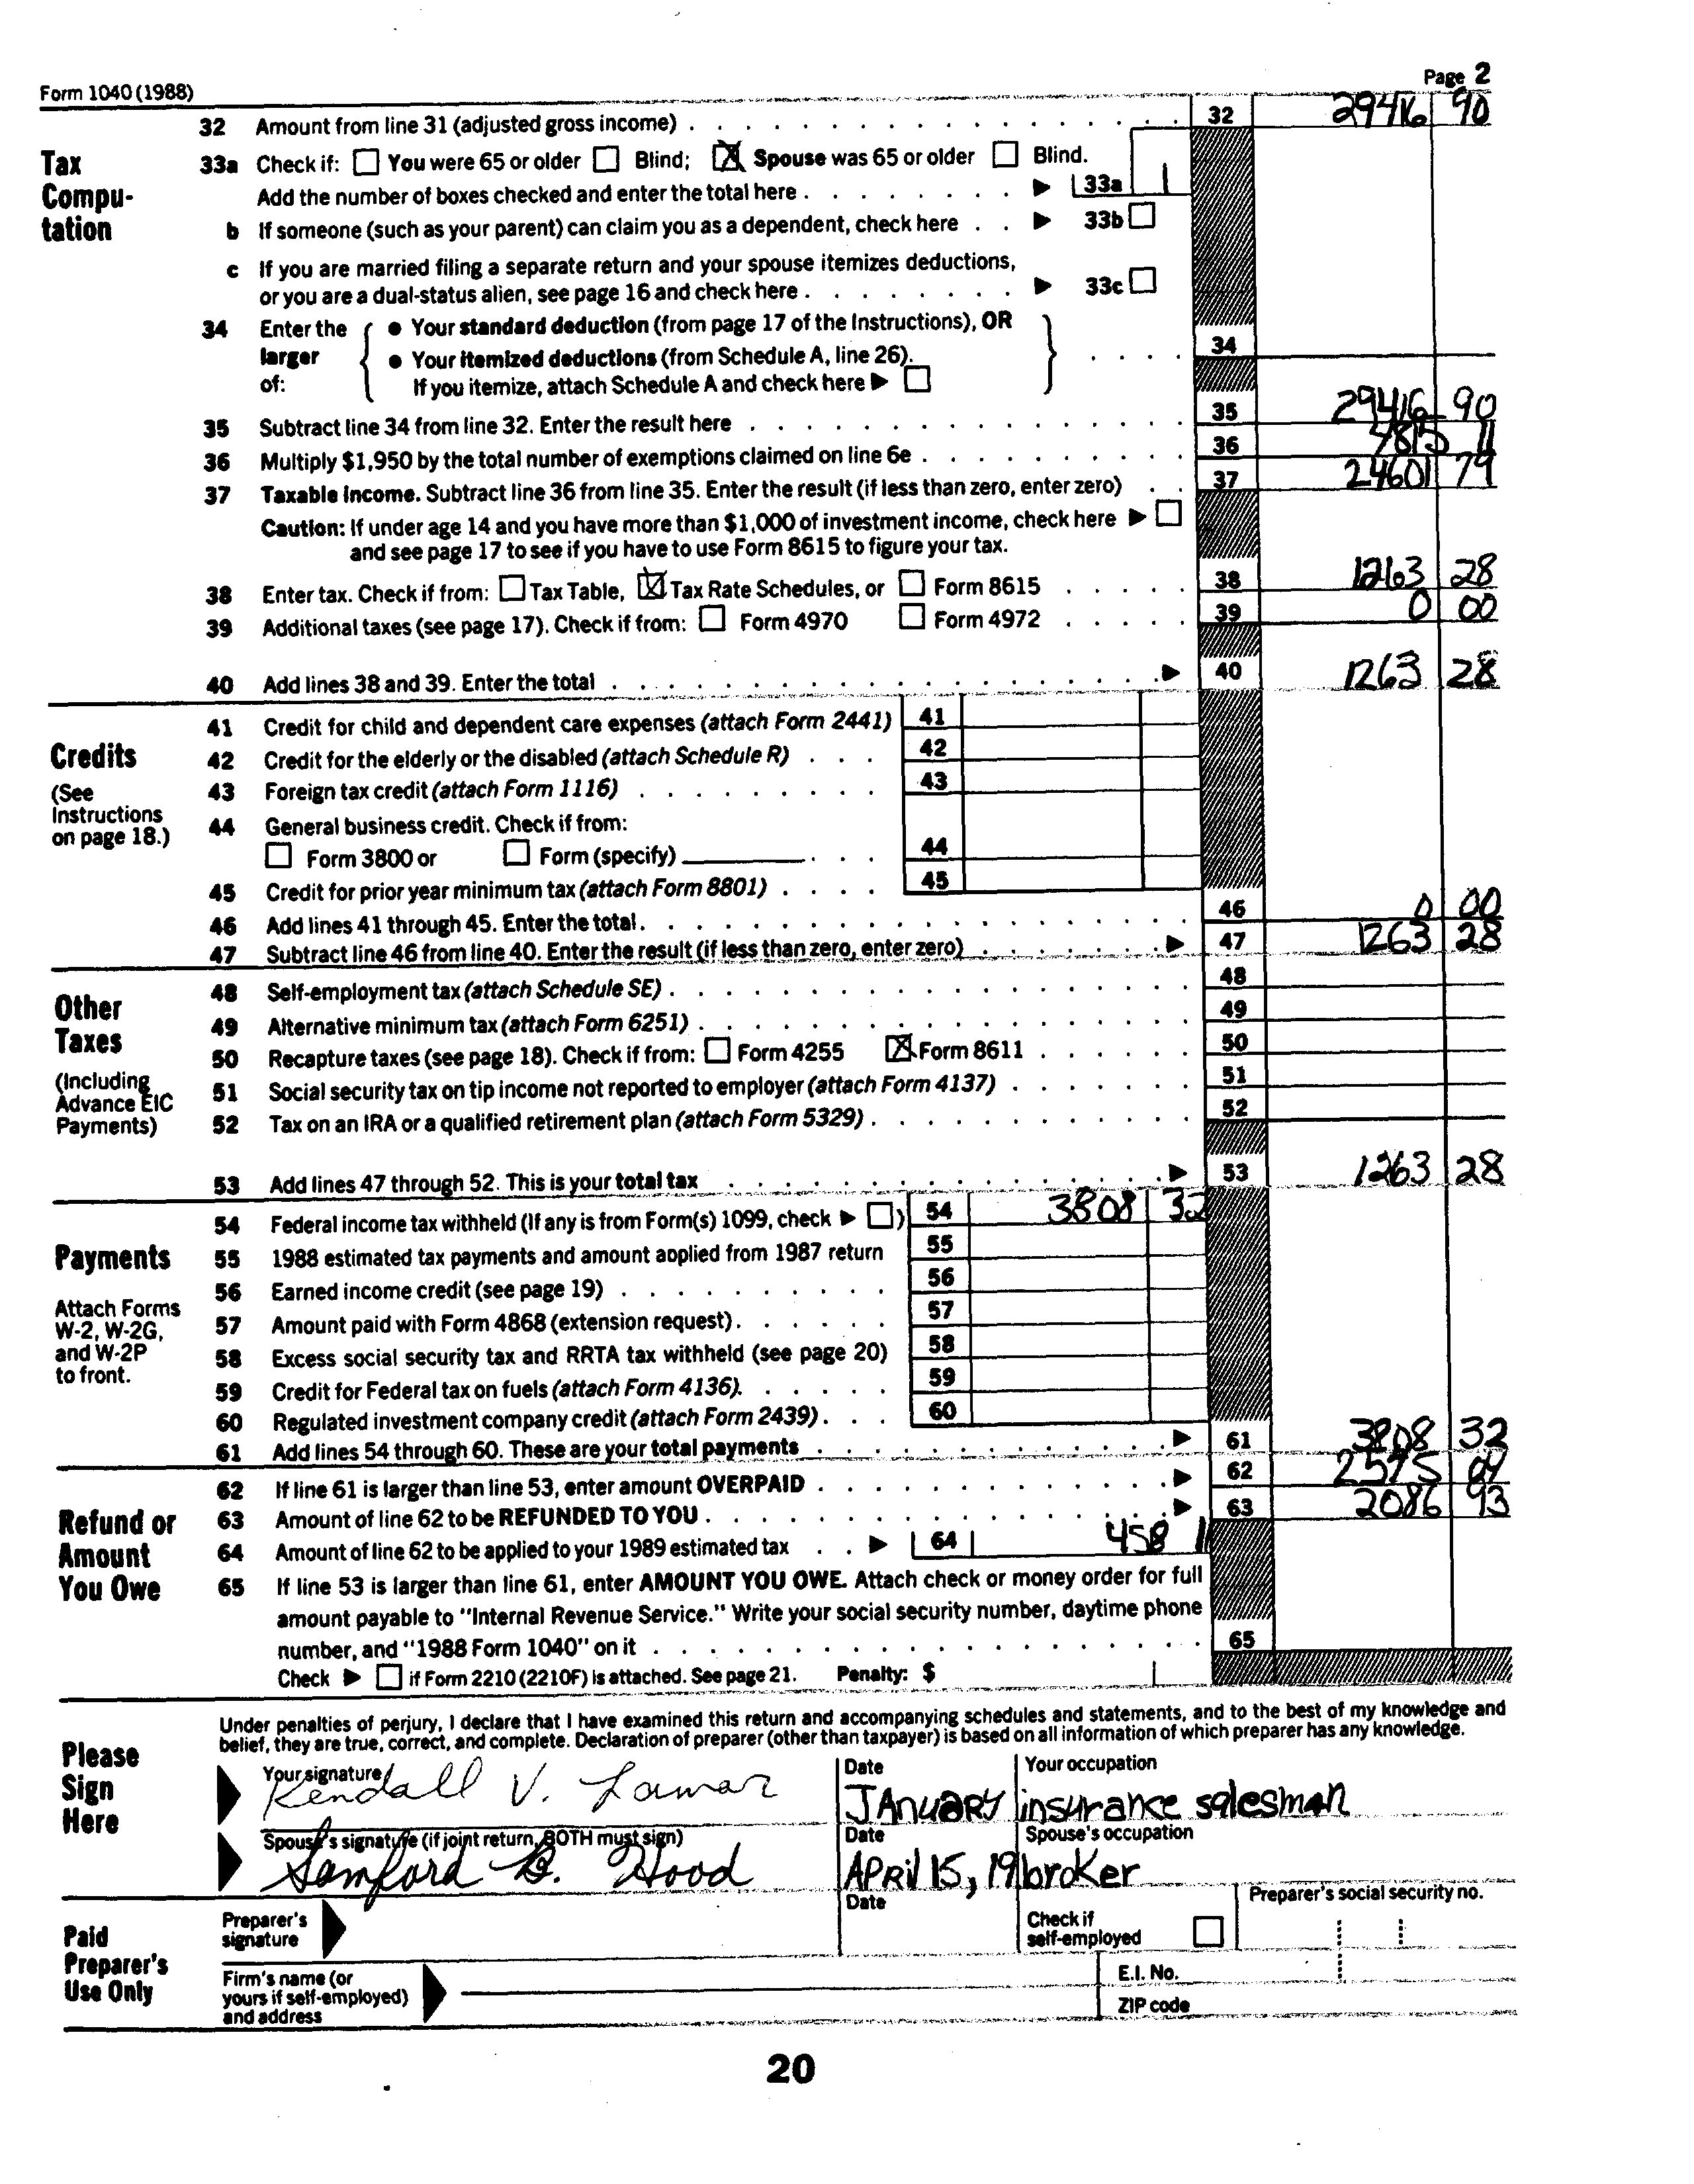 Form 1040 (1988)
Page 2
32 Amount from line 31 (adjusted gross income) . . . . 32 29416 90
Tax Compu-tation
33a Check if: You were 65 or older Blind; X Spouse was 65 or older Blind.
Add the number of boxes checked and enter the total here . . . . 33a 1
b If someone (such as your parent) can claim you as a dependent, check here . . 33b
c If you are married filing a separate return and your spouse itemizes deductions,
or you are a dual-status alien, see page 16 and check here . . . . 33c
34 Enter the { • Your standard deduction (from page 17 of the Instructions), OR }
larger • Your itemized deductions (from Schedule A, line 26). . . . . 34
of: If you itemize, attach Schedule A and check here
35 Subtract line 34 from line 32. Enter the result here . . . . 35 29416 90
36 Multiply $1,950 by the total number of exemptions claimed on line 6e . . . . 36 4815 11
37 Taxable income. Subtract line 36 from line 35. Enter the result (if less than zero, enter zero) . . 37 24601 79
Caution: If under age 14 and you have more than $1,000 of investment income, check here
and see page 17 to see if you have to use Form 8615 to figure your tax.
38 Enter tax. Check if from: Tax Table, X Tax Rate Schedules, or Form 8615 . . . . 38 1263 28
39 Additional taxes (see page 17). Check if from: Form 4970 Form 4972 . . . . 39 0 00
40 Add lines 38 and 39. Enter the total . . . . 40 1263 28
Credits
(See Instructions on page 18.)
41 Credit for child and dependent care expenses (attach Form 2441) 41
42 Credit for the elderly or the disabled (attach Schedule R) . . . 42
43 Foreign tax credit (attach Form 1116) . . . . 43
44 General business credit. Check if from:
Form 3800 or Form (specify) . . . 44
45 Credit for prior year minimum tax (attach Form 8801) . . . . 45
46 Add lines 41 through 45. Enter the total . . . . 46 0 00
47 Subtract line 46 from line 40. Enter the result (if less than zero, enter zero) . . . . 47 1263 28
Other Taxes
(Including Advance EIC Payments)
48 Self-employment tax (attach Schedule SE) . . . . 48
49 Alternative minimum tax (attach Form 6251) . . . . 49
50 Recapture taxes (see page 18). Check if from: Form 4255 X Form 8611 . . . . 50
51 Social security tax on tip income not reported to employer (attach Form 4137) . . . . 51
52 Tax on an IRA or a qualified retirement plan (attach Form 5329) . . . . 52
53 Add lines 47 through 52. This is your total tax . . . . 53 1263 28
Payments
Attach Forms W-2, W-2G, and W-2P to front.
54 Federal income tax withheld (If any is from Form(s) 1099, check ) 54 3808 32
55 1988 estimated tax payments and amount applied from 1987 return 55
56 Earned income credit (see page 19) . . . . 56
57 Amount paid with Form 4868 (extension request) . . . . 57
58 Excess social security tax and RRTA tax withheld (see page 20) 58
59 Credit for Federal tax on fuels (attach Form 4136) . . . . 59
60 Regulated investment company credit (attach Form 2439) . . . 60
61 Add lines 54 through 60. These are your total payments . . . . 61 3808 32
Refund or Amount You Owe
62 If line 61 is larger than line 53, enter amount OVERPAID . . . . 62 2545 04
63 Amount of line 62 to be REFUNDED TO YOU . . . . 63 2086 93
64 Amount of line 62 to be applied to your 1989 estimated tax . . 64 458 11
65 If line 53 is larger than line 61, enter AMOUNT YOU OWE. Attach check or money order for full
amount payable to "Internal Revenue Service." Write your social security number, daytime phone
number, and "1988 Form 1040" on it . . . . 65
Check if Form 2210 (2210F) is attached. See page 21. Penalty: $
Please Sign Here
Under penalties of perjury, I declare that I have examined this return and accompanying schedules and statements, and to the best of my knowledge and
belief, they are true, correct, and complete. Declaration of preparer (other than taxpayer) is based on all information of which preparer has any knowledge.
Your signature Date Your occupation
Kendall V. Lamar JANUARY insurance salesman
Spouse's signature (if joint return, BOTH must sign) Date Spouse's occupation
Samford B. Hood APRil 15, 19 broker
Paid Preparer's Use Only
Preparer's signature Date Check if self-employed Preparer's social security no.
Firm's name (or yours if self-employed) and address
E.I. No.
ZIP code
20